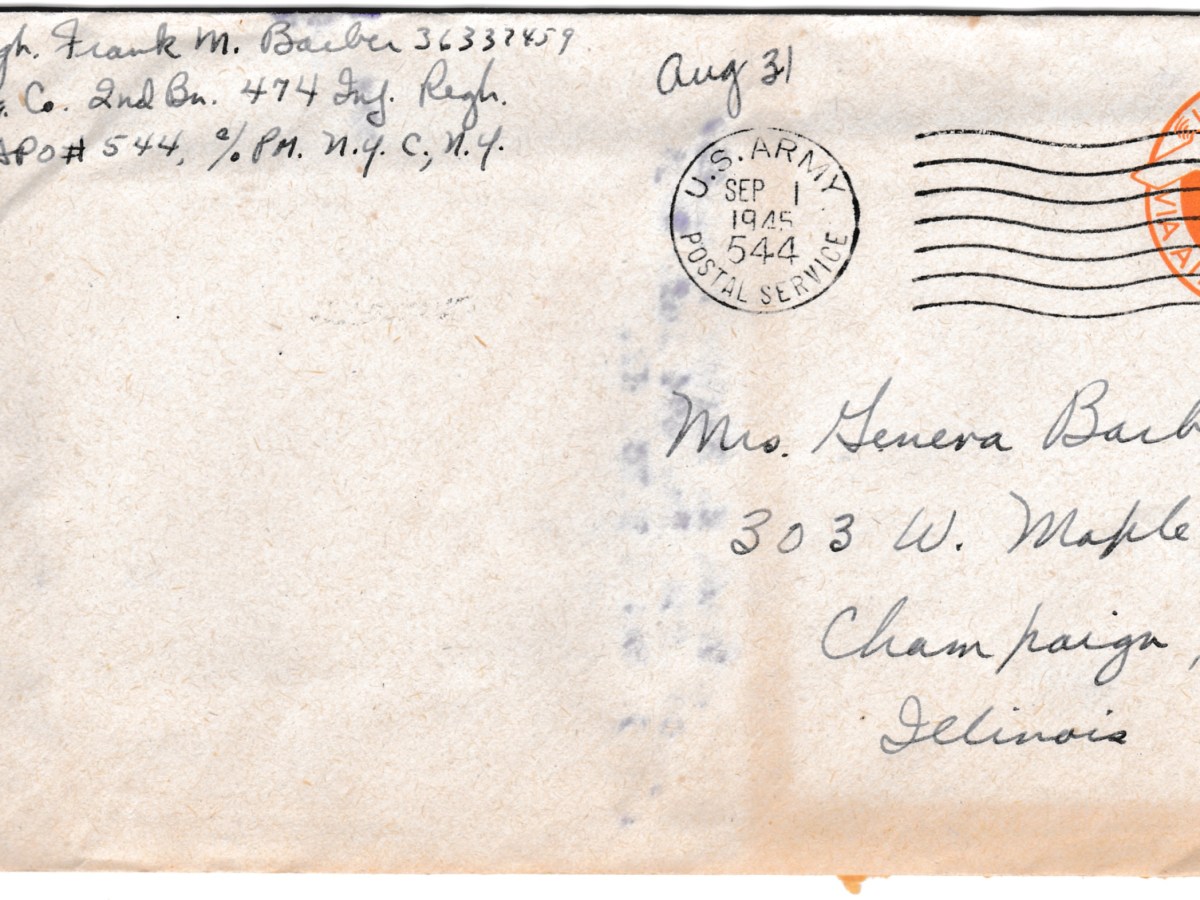 Frank M. Barber 36337459
Co. 2nd Bn. 474 Inf. Regt.
APO# 544, c/o PM. N.Y.C., N.Y.
Aug 31
U.S. ARMY
SEP 1
1945
544
POSTAL SERVICE
VIA AI
Mrs. Geneva Barb
303 W. Maple
Champaign,
Illinois